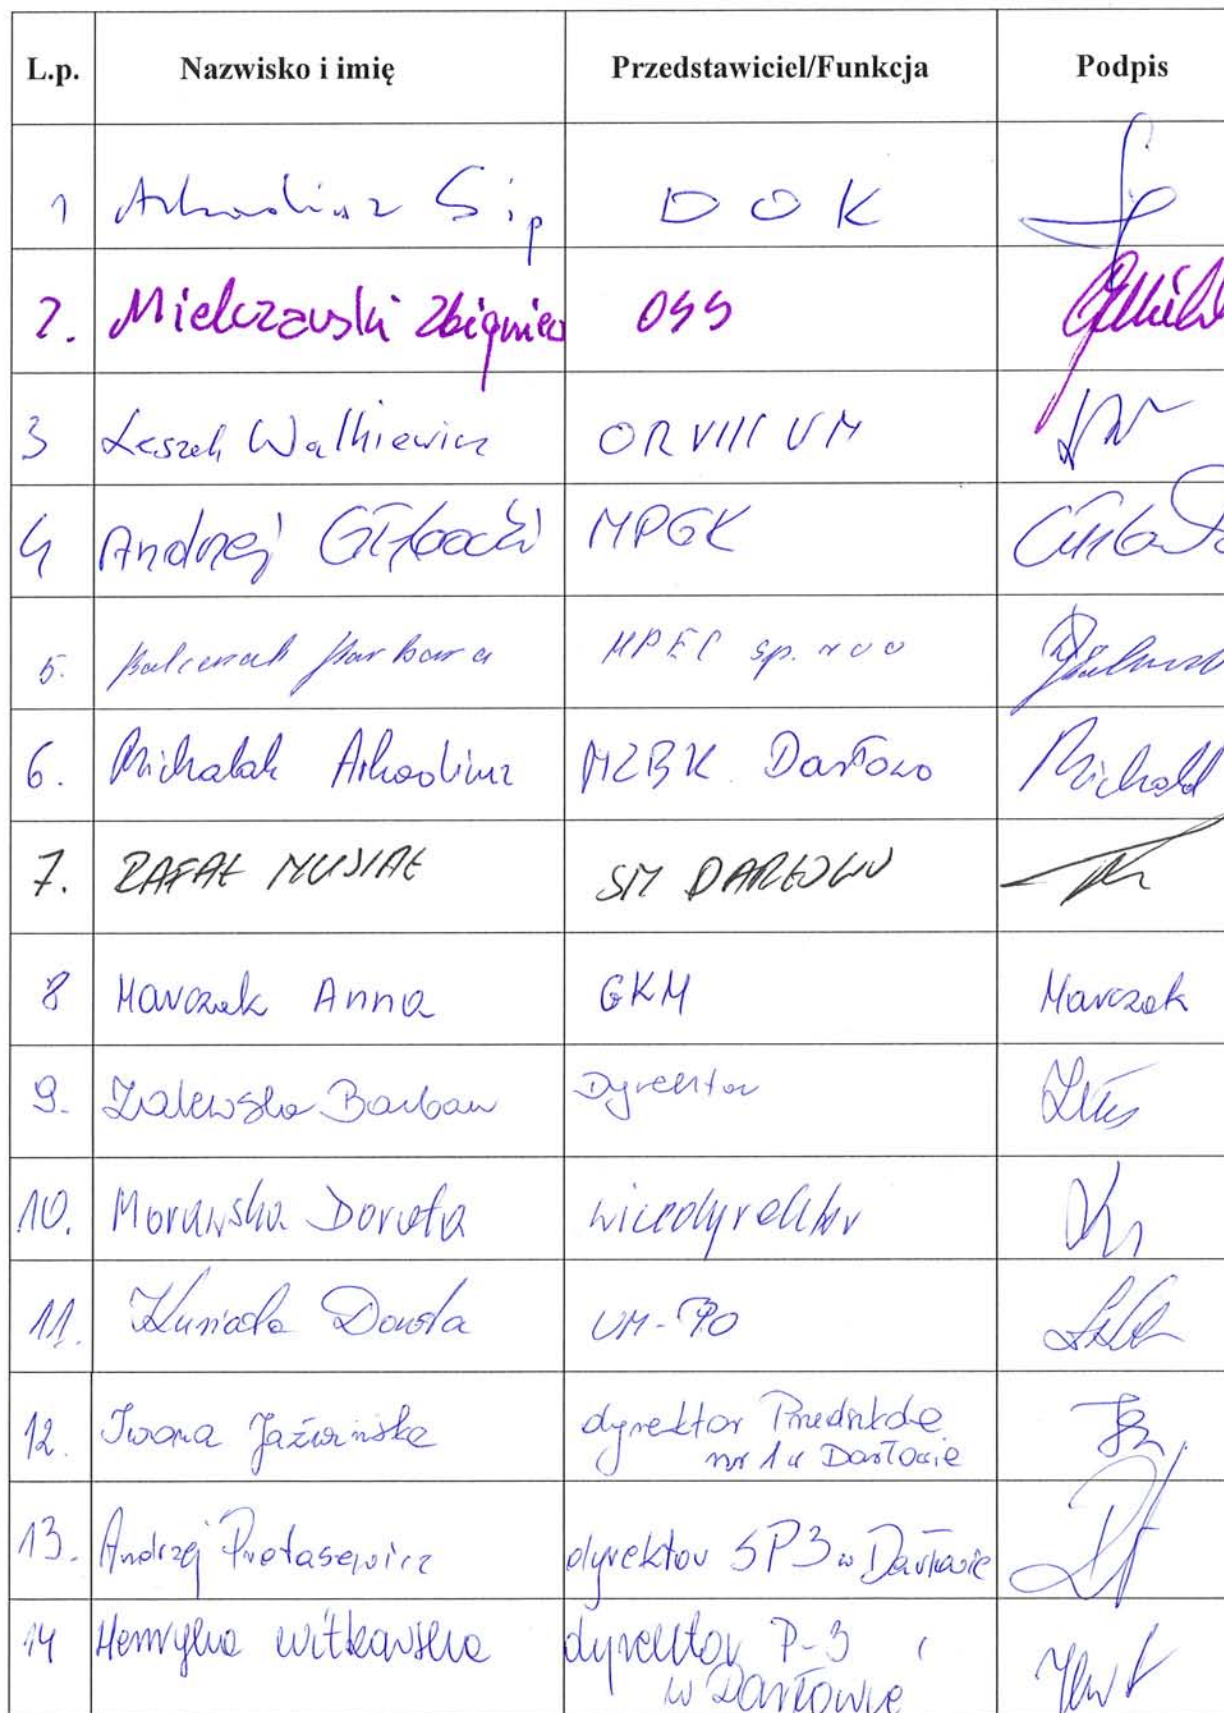 L.p. Nazwisko i imię Przedstawiciel/Funkcja Podpis
1 Arkadiusz Sip DOK
2. Mielczarski Zbigniew OSS
3 Leszek Walkiewicz OR VIII UM
4 Andrzej MPGK
5. Balcerak Barbara MPEC sp. z o o
6. Michalak Arkadiusz MZBK Darłowo Michalak
7. RAFAŁ MUSIAŁ SM DARŁOWO
8 Marczak Anna GKM Marczak
9. Zalewska Barbara Dyrektor
10. Morawska Dorota wicedyrektor
11. Kuriata Dorota UM-
12. Iwona Jaźwińska dyrektor Przedszkola
nr 1 w Darłowie
13. Andrzej Protasewicz dyrektor SP3 w Darłowie
14 Henryka Witkowska dyrektor P-3
w Darłowie